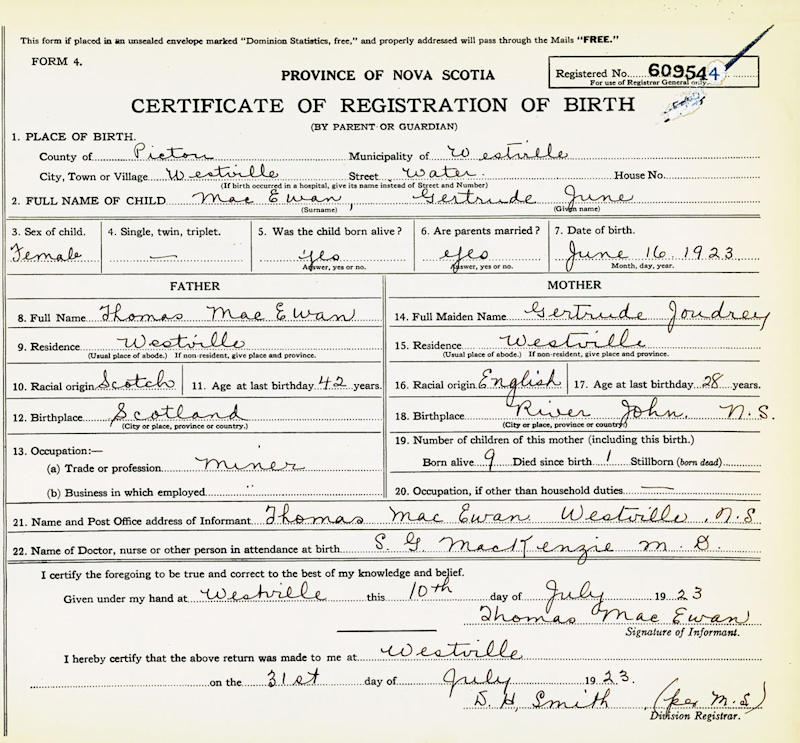 This form if placed in an unsealed envelope marked "Dominion Statistics, free," and properly addressed will pass through the Mails "FREE."
FORM 4.
Registered No. 609544
For use of Registrar General only.
PROVINCE OF NOVA SCOTIA
CERTIFICATE OF REGISTRATION OF BIRTH
(BY PARENT OR GUARDIAN)
1. PLACE OF BIRTH.
County of Pictou Municipality of Westville
City, Town or Village Westville Street Water. House No.
(If birth occurred in a hospital, give its name instead of Street and Number)
2. FULL NAME OF CHILD Mac Ewan, Gertrude June
(Surname) (Given name)
3. Sex of child. 4. Single, twin, triplet. 5. Was the child born alive? 6. Are parents married? 7. Date of birth.
Female — Yes Yes June 16. 1923
Answer, yes or no. Answer, yes or no. Month, day, year.
FATHER MOTHER
8. Full Name Thomas Mac Ewan 14. Full Maiden Name Gertrude Joudrey
9. Residence Westville 15. Residence Westville
(Usual place of abode.) If non-resident, give place and province. (Usual place of abode.) If non-resident, give place and province.
10. Racial origin Scotch 11. Age at last birthday 42 years. 16. Racial origin English 17. Age at last birthday 28 years.
12. Birthplace Scotland 18. Birthplace River John, N.S.
(City or place, province or country.) (City or place, province or country.)
13. Occupation:— 19. Number of children of this mother (including this birth.)
(a) Trade or profession Miner Born alive 9 Died since birth 1 Stillborn (born dead)
(b) Business in which employed " 20. Occupation, if other than household duties —
21. Name and Post Office address of Informant Thomas Mac Ewan Westville, N.S
22. Name of Doctor, nurse or other person in attendance at birth S. G. MacKenzie M. D.
I certify the foregoing to be true and correct to the best of my knowledge and belief.
Given under my hand at Westville this 10th day of July 1923
Thomas Mac Ewan
Signature of Informant.
I hereby certify that the above return was made to me at Westville
on the 31st day of July 1923.
D. H. Smith (per M.S)
Division Registrar.